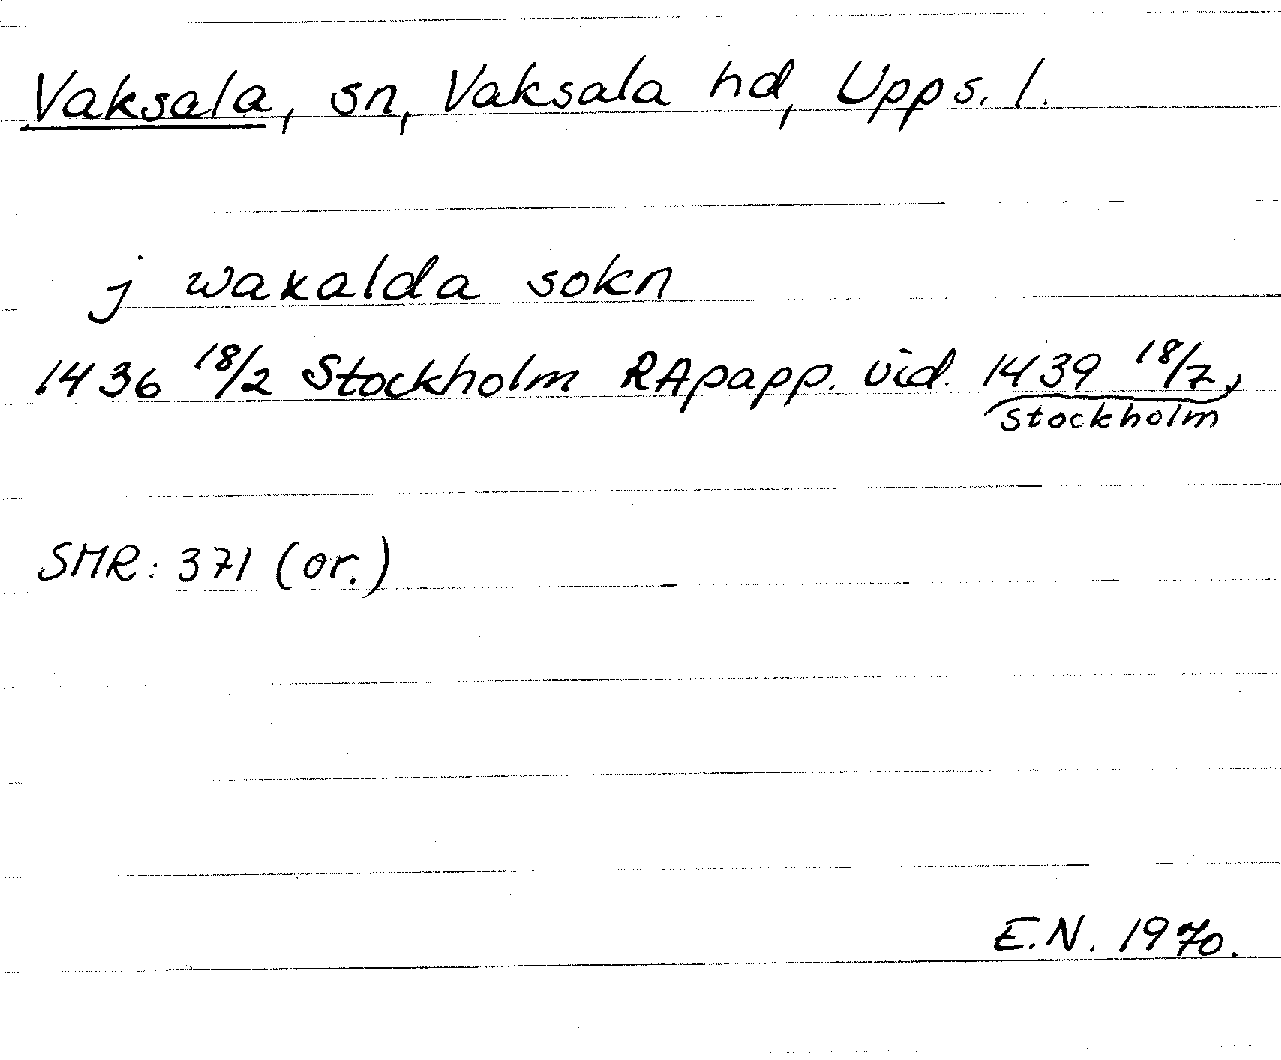 Vaksala, sn, Vaksala hd, Upps. l.
j waxalda sokn
1436 18/2 Stockholm RApapp. vid. 1439 18/7,
Stockholm
SMR: 371 (or.)
E.N. 1970.